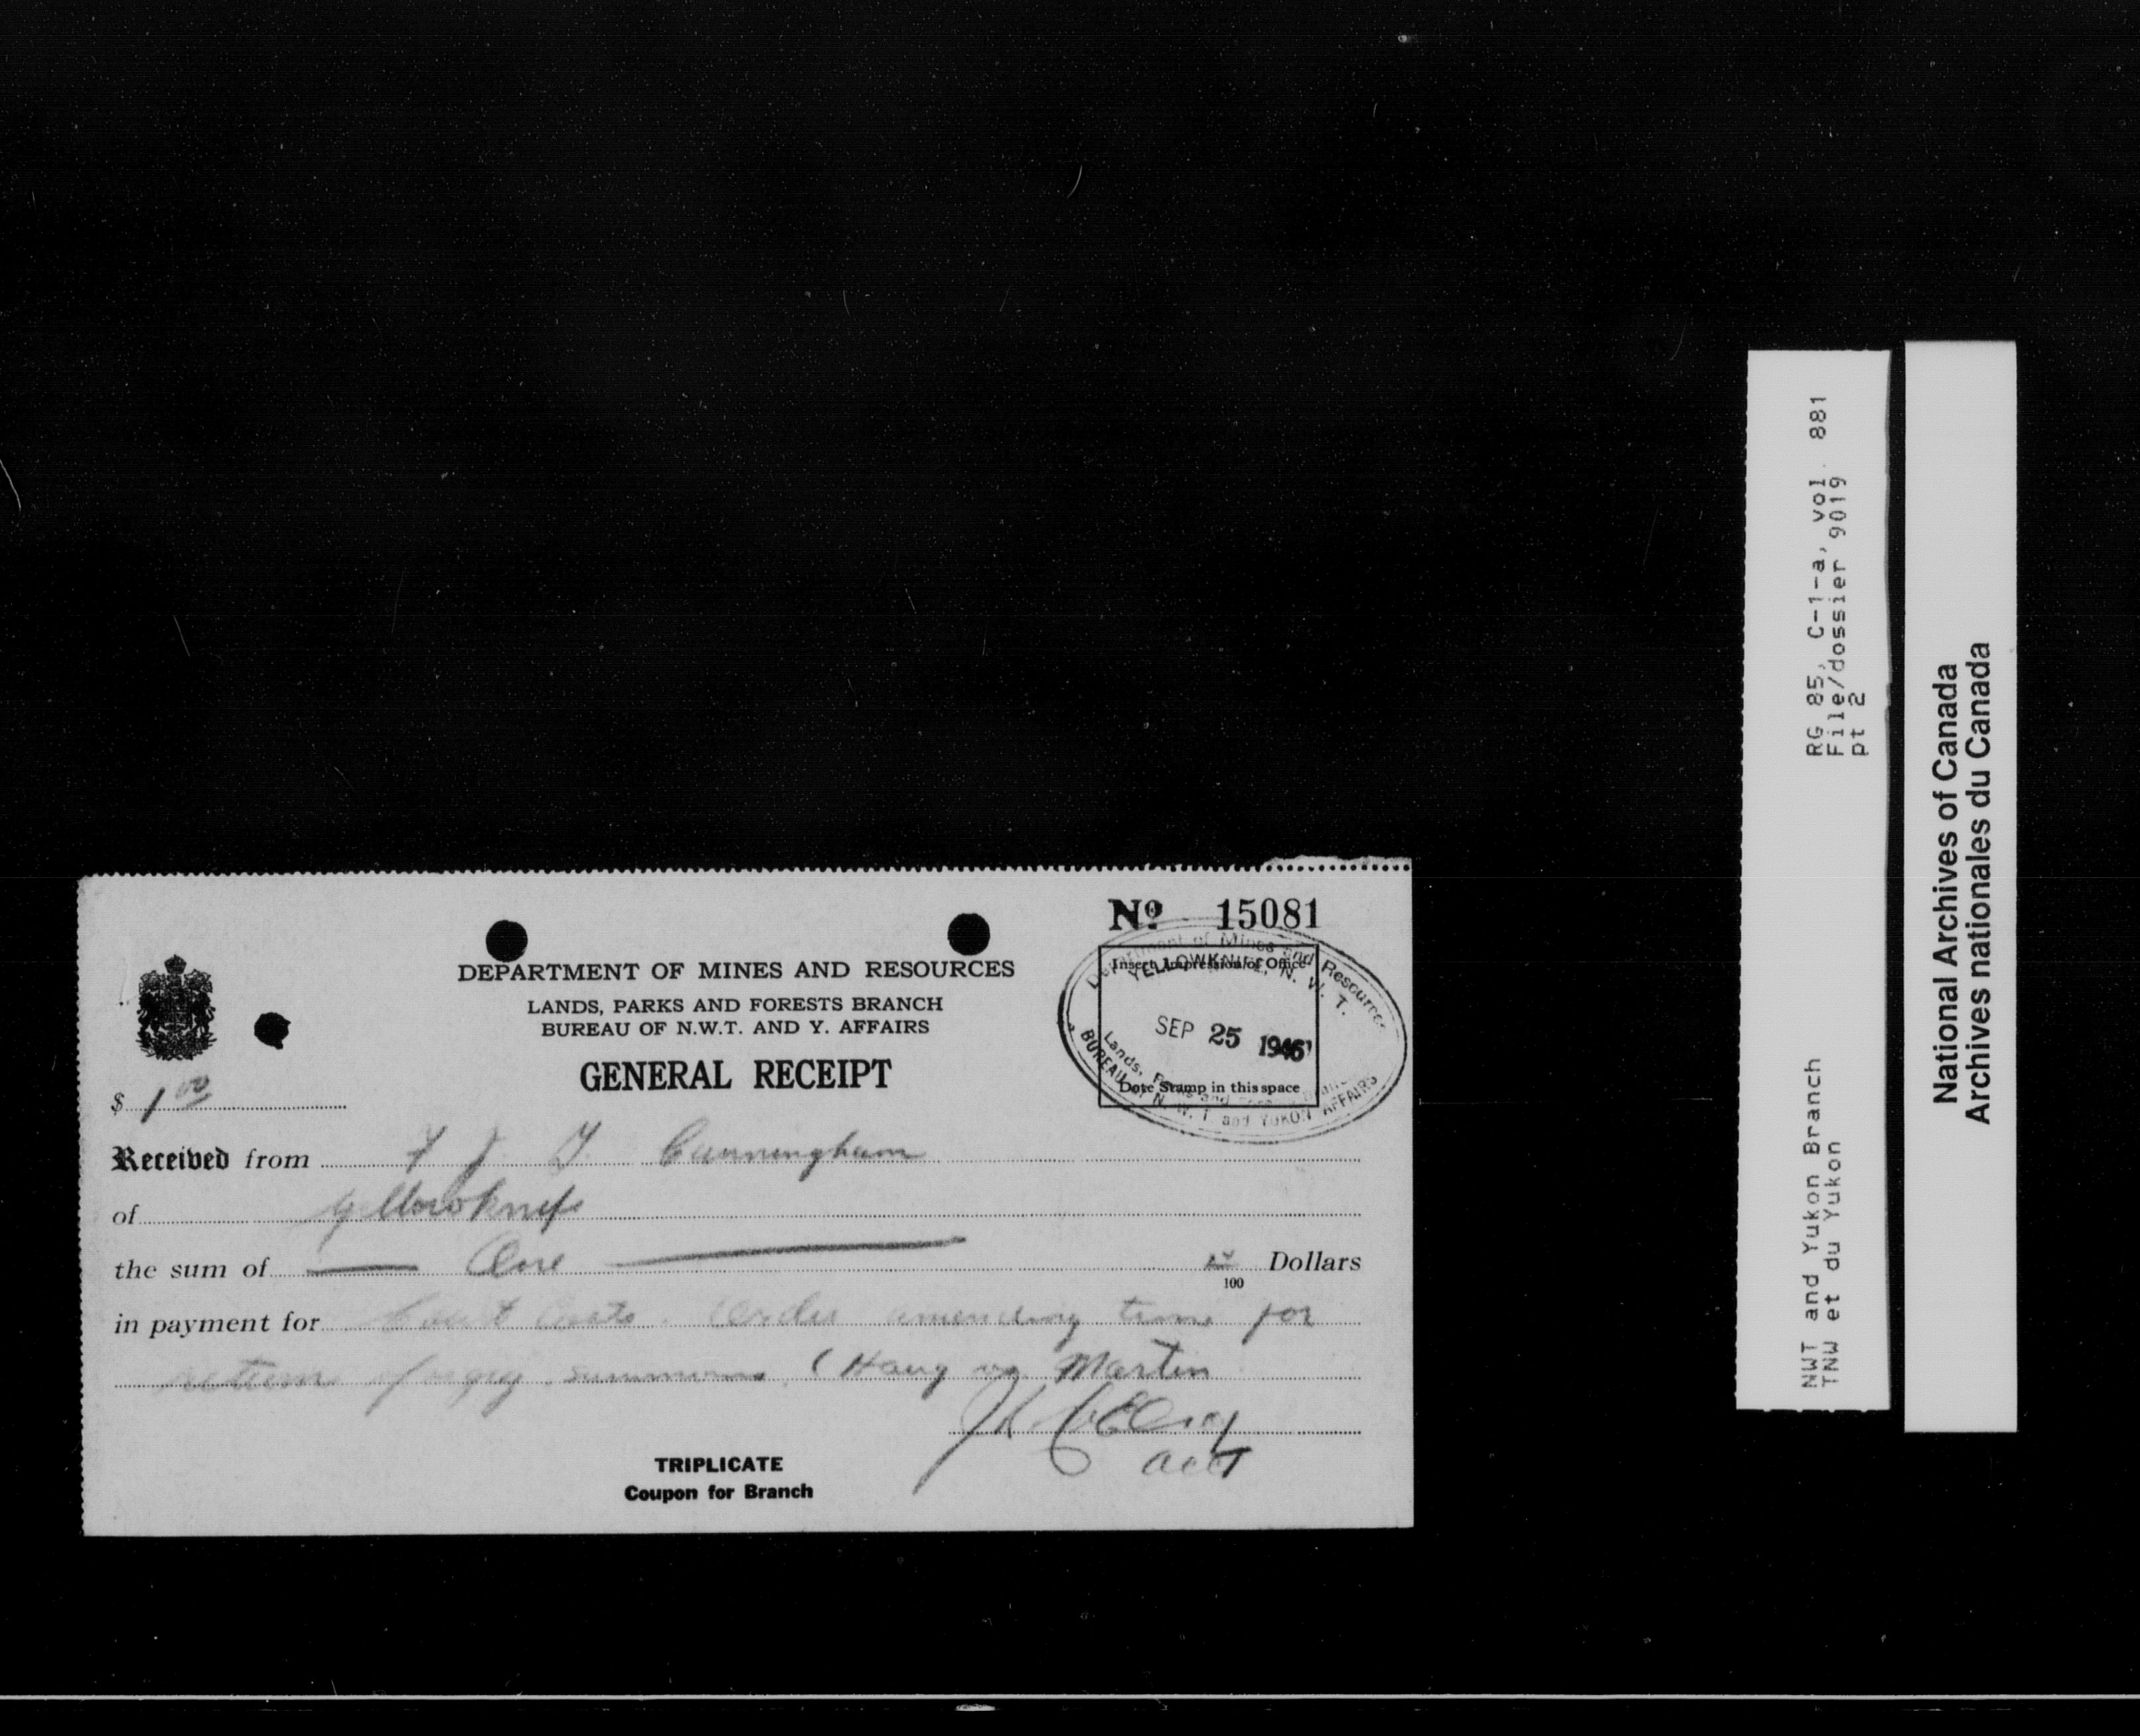 No 15081
DEPARTMENT OF MINES AND RESOURCES
LANDS, PARKS AND FORESTS BRANCH
BUREAU OF N.W.T. AND Y. AFFAIRS
GENERAL RECEIPT
Department of Mines and Resources
YELLOWKNIFE, N. W. T.
Insert Impression of Office
SEP 25 1946
Date Stamp in this space
Lands, Parks and Forests Branch
BUREAU OF N. W. T. and YUKON AFFAIRS
$ 1 00
Received from F J G Cunningham
of Yellowknife
the sum of One 100 Dollars
in payment for Court Costs. Order amending time for
return of summons. (Haug vs. Martin
acct
TRIPLICATE
Coupon for Branch
RG 85, C-1-a, vol. 881
File/dossier 9019
pt 2
NWT and Yukon Branch
TNW et du Yukon
National Archives of Canada
Archives nationales du Canada